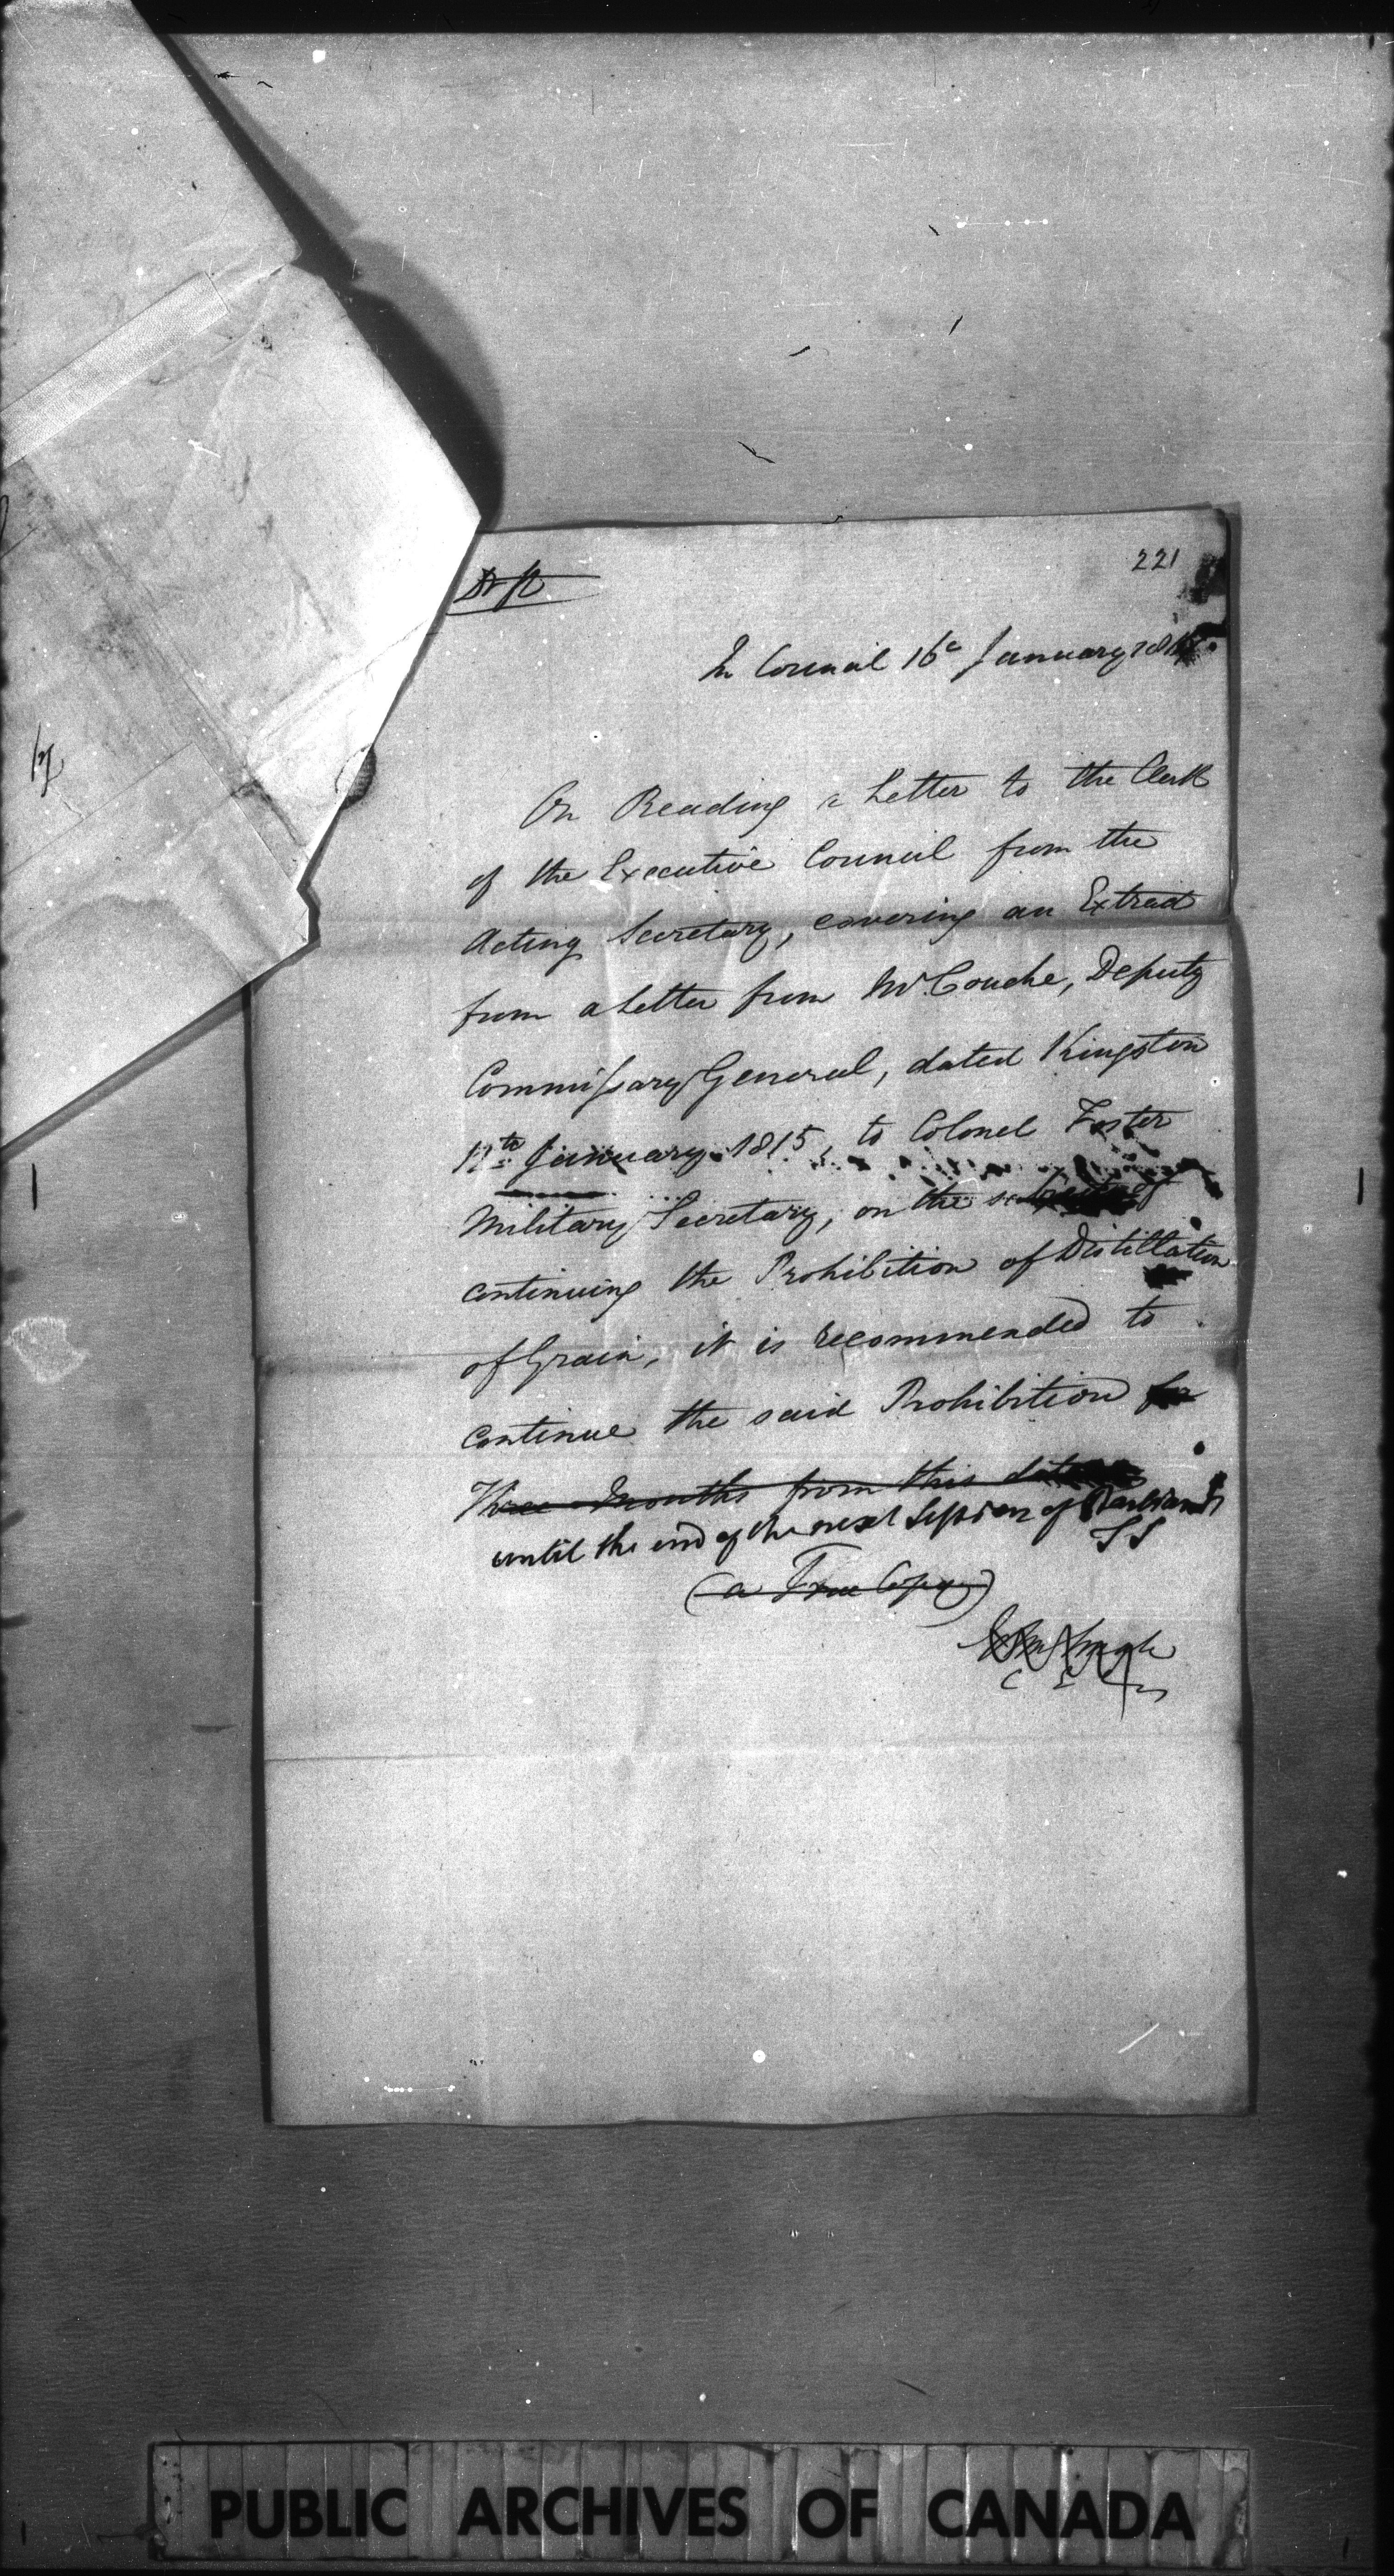 221
Drft
In Council 16th January 1815.
On Reading a Letter to the Clerk
of the Executive Council from the
Acting Secretary, covering an Extract
from a Letter from Mr Couche, Deputy
Commissary General, dated Kingston
12th January 1815, to Colonel Foster
Military Secretary, on the subject of
continuing the Prohibition of Distillation
of Grain, it is recommended to
continue the said Prohibition for
Three Months from this date
until the end of the next Session of Parliament
(a True Copy)
PUBLIC ARCHIVES OF CANADA